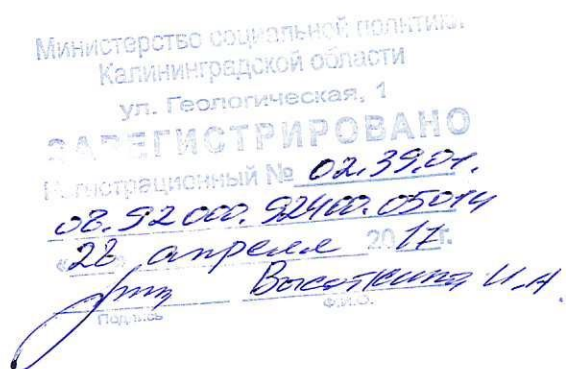 Министерство социальной политики
Калининградской области
ул. Геологическая, 1
ЗАРЕГИСТРИРОВАНО
Регистрационный № 02.39.01.
08.92000.92400.05014
«28» апреля 2017 г.
Высоткина И.А.
Подпись Ф.И.О.